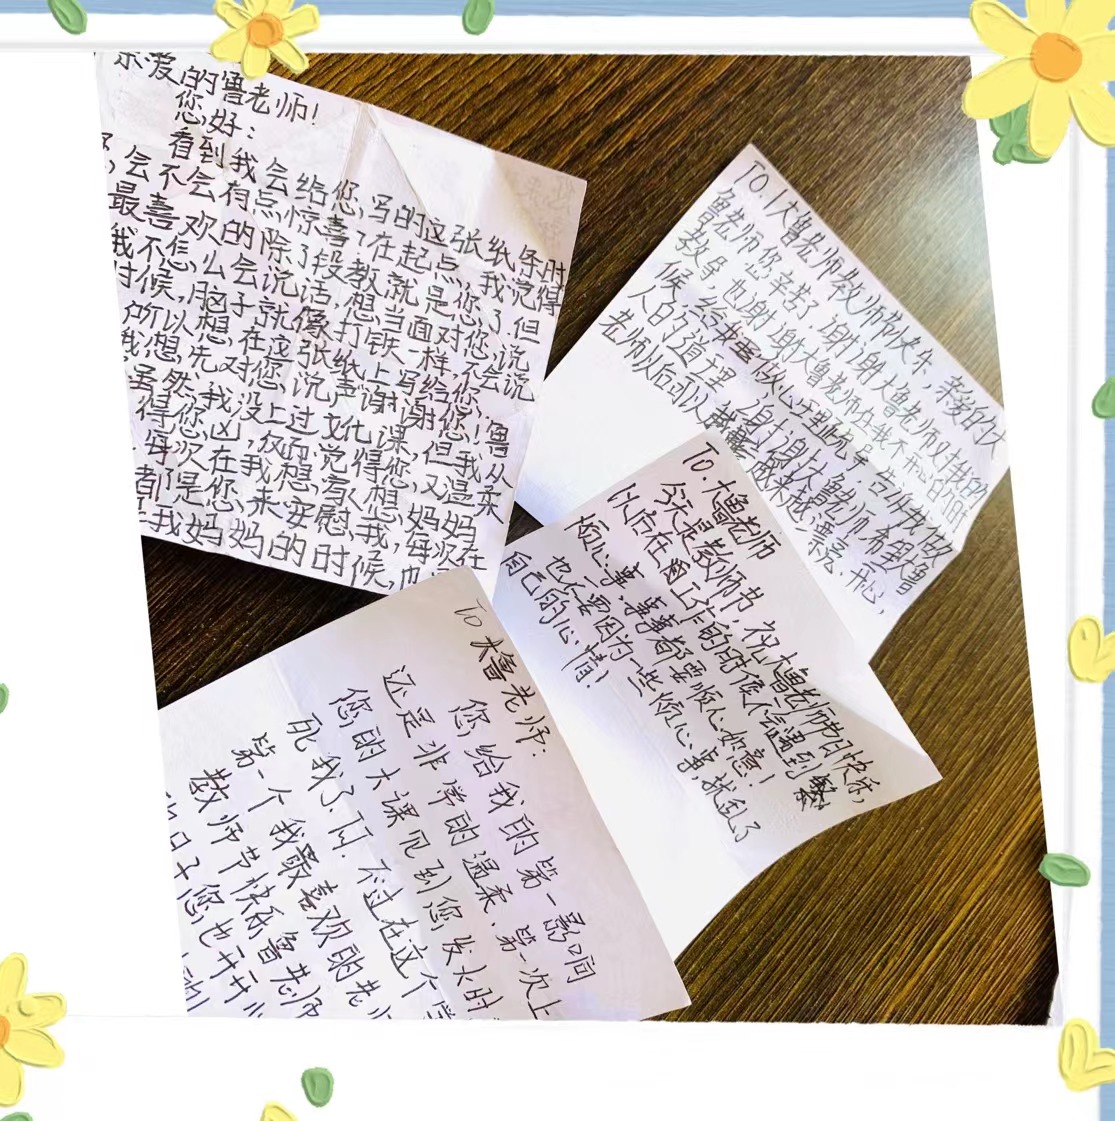 亲爱的鲁老师！
您好：
看到我会给您写的这张纸条时
，会不会有点惊喜？在起点，我记得
最喜欢的除了段教就是您了，但
我不怎么会说话，想当面对您说
时候，脑子就像打铁一样，
所以想，在这张纸上写给您，
我想先对您说声谢谢您！鲁
虽然我没上过文化课，但我从
得您凶，反而觉得您又温柔
每次在我想家人想妈妈
都是您来安慰我，每次在
我妈妈的时候，也
TO.大鲁老师教师节快乐，亲爱的大
鲁老师您辛苦了，谢谢大鲁老师对我的
教导，也谢谢大鲁老师在我不开心的时
候给我
人的道理，谢谢大鲁老师，希望大鲁
老师以后可以越来越漂亮，开心，
To.大鲁老师
今天是教师节，祝大鲁老师节日快乐，
以后在工作的时候不会遇到
烦心事，事事都要顺心如意！
也不要因为一些烦心事，就乱了
自己的心情！
To 大鲁老师：
您给我的第一影响
还是非常的温柔，第一次上
您的大课见到您发火时
死我了啊．不过在这个
第一个我最喜欢的老
教师节快乐鲁老师
日子您也开开